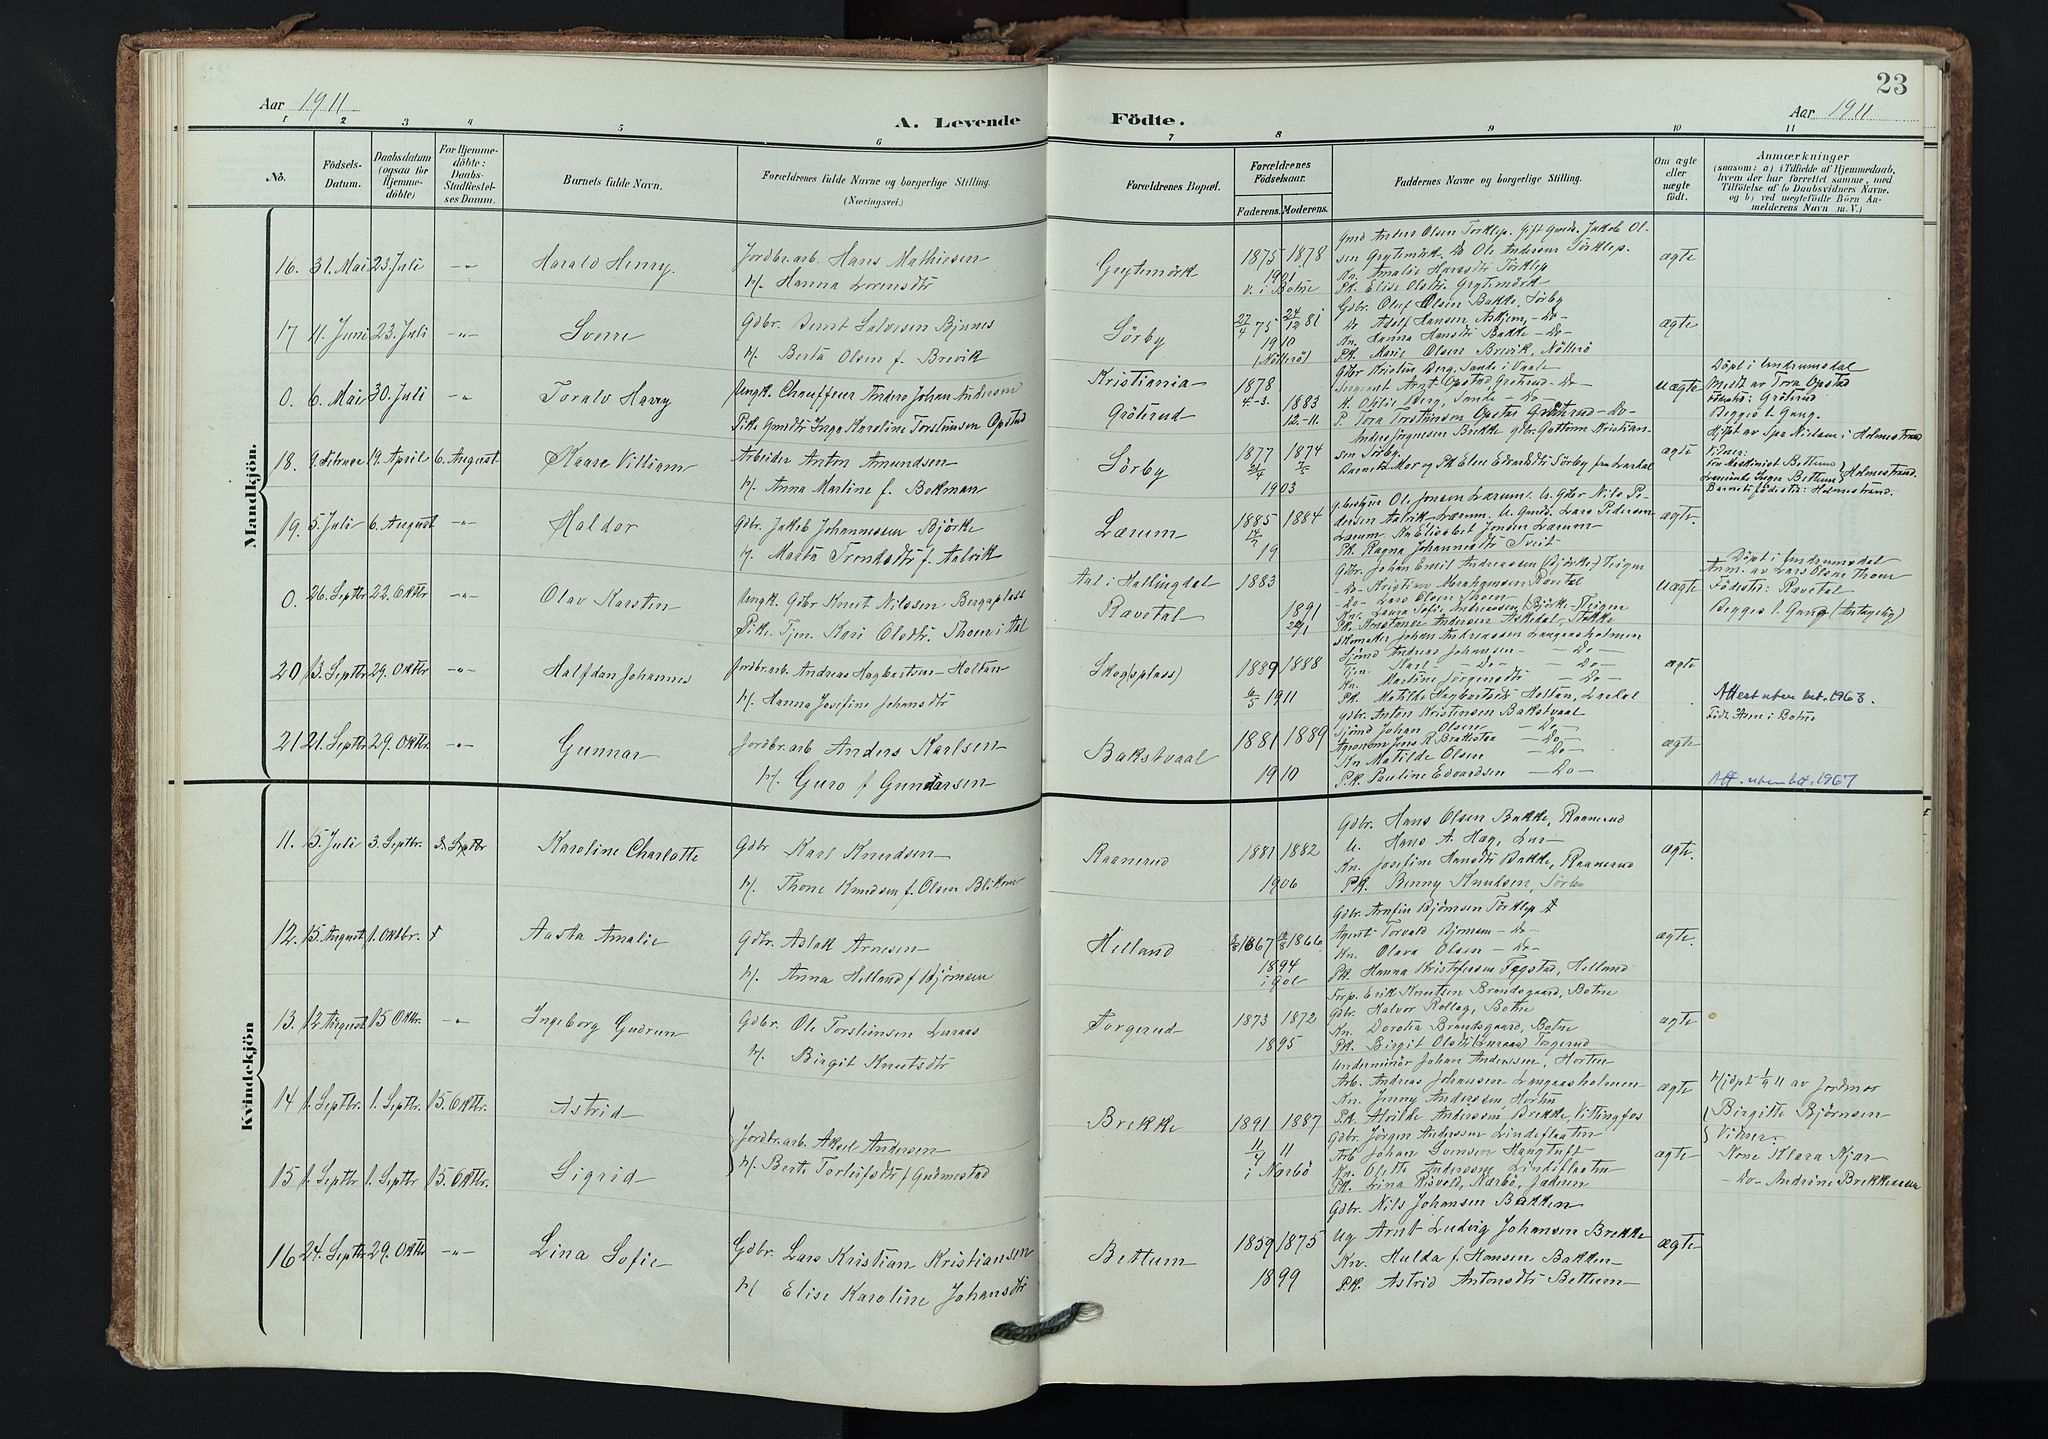 23
Aar 1911
A. Levende Födte.
Aar 1911
1 2 3 4 5 6 7 8 9 10 11
No.
Födsels-Datum.
Daabsdatum (ogsaa for Hjemme-döbte)
For Hjemme-döbte: Daabs-Stadfæstel-ses Datum.
Barnets fulde Navn.
Forældrenes fulde Navne og borgerlige Stilling.
(Næringsvei.)
Forældrenes Bopæl.
Forældrenes Födselsaar.
Faderens. Moderens.
Faddernes Navne og borgerlige Stilling.
Om ægte eller uægte födt.
Anmærkninger
(saasom: a) i Tilfælde af Hjemmedaab, hvem der har forrettet samme, med Tilföielse af to Daabsvidners Navne, og b) ved uægtefödte Börn An-melderens Navn m. V.)
Mandkjön.
16. 31. Mai 23 Juli -"- Harald Henry. Jordbr.arb. Hans Mathiesen
H. Hanna Lorensdtr
Grytemörk 1875 1878
1901
v. i Botne
Gmd Anders Olsen Torklep. Gift Gmd. Jakob Ol-
sen Grytemörk. Do Ole Andersen Törklep.
Kn. Amalie Hansdtr Törklep
Pk. Elise Olsdtr. Grytemörk
ægte
17 11. Juni 23. Juli -"- Sverre Gdbr. Bernt Salvesen Bjunes
H. Berta Olsen f. Brevik
Sörby 27/4 75 24/12 81
1910
(Nötterö)
Gdbr. Oluf Olsen Bakke, Sörby
Do Adolf Hansen Askjem, -Do-
Kn. Hanna Hansdtr Bakke -Do-
Pk. Marie Olsen Brevik, Nötterö
ægte
0. 6. Mai 30. Juli -"- Toralv Harry Ungk. Chauffeur Anders Johan Andersen
Pike Gmdtr Inga Karoline Torsteinsen Opstad
Kristiania
Gröterud
1878
4.-3. 1883
12.-11.
Gdbr Kristin Berg, Sande i Vaale
Sergeant Arnt Opstad, Gröterud -Do-
P. Tora Torsteinsen Opstad Gröterud -Do-
uægte
Döpt i Undrumsdal
Medt av Tora Opstad
Födested: Gröterud
Begges 1. Gang.
18. 9. Februar 19. April 6. August Kaare Villiam Arbeider Anton Amundsen
H. Anna Martine f. Bekman
Sörby 1877 1874
1903
Anders Jörgensen Brekke gdbr. Guttorm Kristian-
sen Sörby.
Barnets Mor og Pk Elen Edvardsdtr Sörby fra Lardal
ægte
Hjdpt av Spr Nielsen i Holmestrand
Vidner:
Fru Maskinist Bettum
Inger Bettum
Holmestrand.
Barnets födested: Holmestrand.
19. 5 Juli 6. August -"- Haldor Gdbr. Jakob Johannessen Björke
H. Marta Trondsdtr f. Aalvik
Lærum 1885 1884
19
Ole Jonsen Lærum. U. Gdbr Nils Pe-
dersen Aalvik-Lærum. U. Gmds. Lars Pedersen
Lærum. Kn Elisabet Jonsen Lærum.
Pk. Ragna Johannesdtr Tveit.
ægte.
0. 26. Septbr 22. Oktbr -"- Olav Karsten Ungk. Gdbr Knut Nilssen Bergaplass
Pike. Tjen. Kari Olsdtr. Thom i Aal
Aal i Hallingdal
Rævetal
1883
1891
Gdbr. Johan Emil Andreassen (Björke) Teigen
-Do- Kristian Abrahamsen Rævetal
-Do- Lars Olsen Thom
Kn. Laura Sofie Andreassen (Björke) Teigen
Andersen Askedal, Stokke
uægte
Döpt i Undrumsdal
Anm. av Lars Olsen Thom
Födested: Rævetal
Begges 1. Gang (Antagelig)
20 13. Septbr 29. Oktbr -"- Halfdan Johannes Jordbr.arb. Andreas Hagbartsen-Holtan
H. Hanna Josefine Johansdtr
Skog(splass) 1889 1888
6/5 1911
Skomaker Johan Andreassen Langaasholmen
Sjömd Andreas Johansen -Do-
Tjen. Karl -Do- -Do-
Kn. Martine Jörgensdtr -Do-
Pk. Matilde Hagbartsdtr Holtan, Lardal
ægte
Attest uten bet. 1963.
Födt Hem i Botne
21 21. Septbr 29. Oktbr. -"- Gunnar Jordbr.arb Anders Karlsen
H. Guro f Gundersen
Bakstvaal 1881 1889
1910
Gdbr. Anton Kristensen Bakstvaal
Sjömd Johan Olsen -Do-
Agronom Jens R Brattestaa -Do-
Kn Matilde Olsen -Do-
P.K. Pauline Edvardsen -Do-
ægte
Att. uten bet. 1967
Kvindekjön
11. 5. Juli 3. Septbr. 3. Septbr Karoline Charlotte Gdbr Karl Knudsen
H. Thone Knudsen f. Olsen Bliken
Raanerud 1881 1882
1906
Gdbr. Hans Olsen Bakke, Raanerud
U. Hans A. Hæg, Lur-
Kn. Josefine Hansdtr Bakke, Raanerud
PK. Benny Knudsen, Sörby
ægte.
12. 15. August 1. Oktbr. Aasta Amalie Gdbr. Aslak Arnesen
H. Anna Helland f Björnsen
Helland 1867 1866
1894
i Gol
Gdbr. Arnfin Björnsen Törklep
Agent Torvald Björnsen -Do-
Kn. Olava Olsen -Do-
Pk. Hanna Kristoffersen Fegstad, Helland
ægte.
13. 12 August 15 Oktbr. -"- Ingeborg Gudrun Gdbr. Ole Torsteinsen Luraas
H. Birgit Knutsdtr
Torgerud 1873 1872
1895
Forp. Erik Knutsen Brandsgaard, Botne
Gdbr. Halvor Rollag, Botne
Kn. Dorotea Brandsgaard, Botne
PK. Birgit Olsdtr (Luraas) Torgerud
ægte
14 1. Septbr. 1. Septbr 15. Oktbr. Astrid
Jordbr.arb. Aksel Andersen
H. Berte Torleifsdtr f Gudmestad
Brekke 1891 1887
11/4 11
i Nærbö
Underminör Johan Anderssen, Horten
Arb. Andreas Johansen Langaasholmen
Kn. Jenny Anderssen Horten
Pk. Alvilde Anderssen Brekke, Vittingfos
ægte
Hjdpt 1/9 11 av Jordmor
Birgitte Björnsen
Vidner:
15 1. Septbr 1. Septbr 15. Oktbr. Sigrid
Gdbr. Jörgen Anderssen Lindeflaaten
Arb Johan Svensen Haugtuft
Kn. Olette Anderssen Lindeflaaten
Pk. Lina Risvold, Nærbö, Jæderen
ægte
Kone Klara Kjær
-Do- Andrine Brekkeaasen
16 24. Septbr 29. Oktbr -"- Lina Sofie Gdbr. Lars Kristian Kristiansen
H Elise Karoline Johansdtr
Bettum 1859 1875
1899
Gdbr. Nils Johansen Bakken
Ug Arnt Ludvig Johansen Brekke
Kn. Hulda f. Hansen Bakken
P.K. Astrid Antonsdtr Bettum
ægte